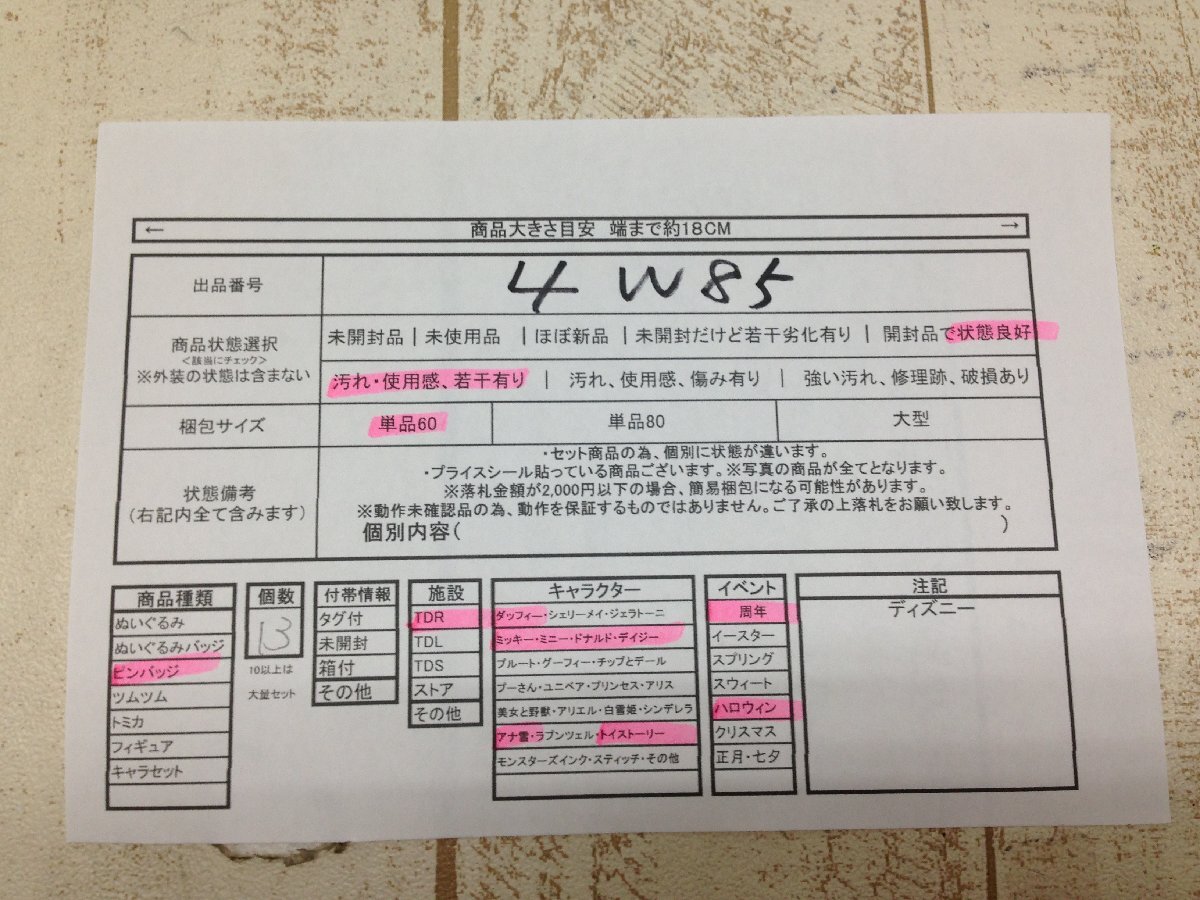 ← 商品大きさ目安 端まで約18CM →
出品番号 4 W 85
商品状態選択
<該当にチェック>
※外装の状態は含まない
未開封品 | 未使用品 | ほぼ新品 | 未開封だけど若干劣化有り | 開封品で状態良好
汚れ・使用感、若干有り | 汚れ、使用感、傷み有り | 強い汚れ、修理跡、破損あり
梱包サイズ 単品60 単品80 大型
状態備考
(右記内全て含みます)
・セット商品の為、個別に状態が違います。
・プライスシール貼っている商品ございます。※写真の商品が全てとなります。
※落札金額が2,000円以下の場合、簡易梱包になる可能性があります。
※動作未確認品の為、動作を保証するものではありません。ご了承の上落札をお願い致します。
個別内容( )
商品種類
ぬいぐるみ
ぬいぐるみバッジ
ピンバッジ
ツムツム
トミカ
フィギュア
キャラセット
個数
13
10以上は
大量セット
付帯情報
タグ付
未開封
箱付
その他
施設
TDR
TDL
TDS
ストア
その他
キャラクター
ダッフィー・シェリーメイ・ジェラトーニ
ミッキー・ミニー・ドナルド・デイジー
プルート・グーフィー・チップとデール
プーさん・ユニベア・プリンセス・アリス
美女と野獣・アリエル・白雪姫・シンデレラ
アナ雪・ラプンツェル・トイストーリー
モンスターズインク・スティッチ・その他
イベント
周年
イースター
スプリング
スウィート
ハロウィン
クリスマス
正月・七夕
注記
ディズニー